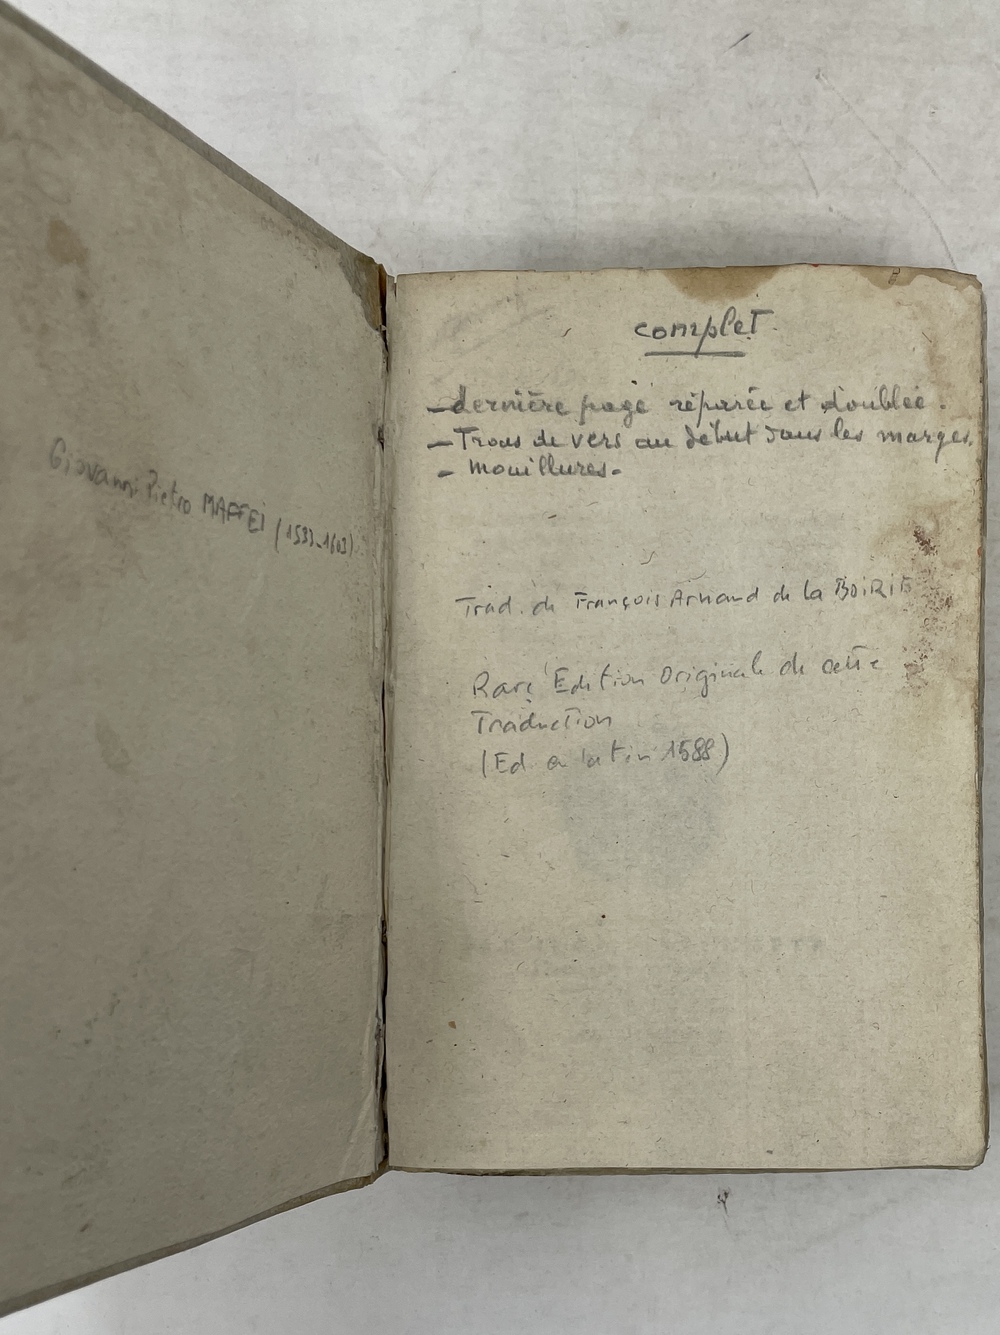 Giovanni Pietro MAFFEI (1533-1603)
complet
- dernière page réparée et doublée.
- Trous de vers au début dans les marges.
- Mouillures.
Trad. de François Arnaud de la BOiRiE
Rare Edition Originale de cette
Traduction
(Ed. en latin 1588)